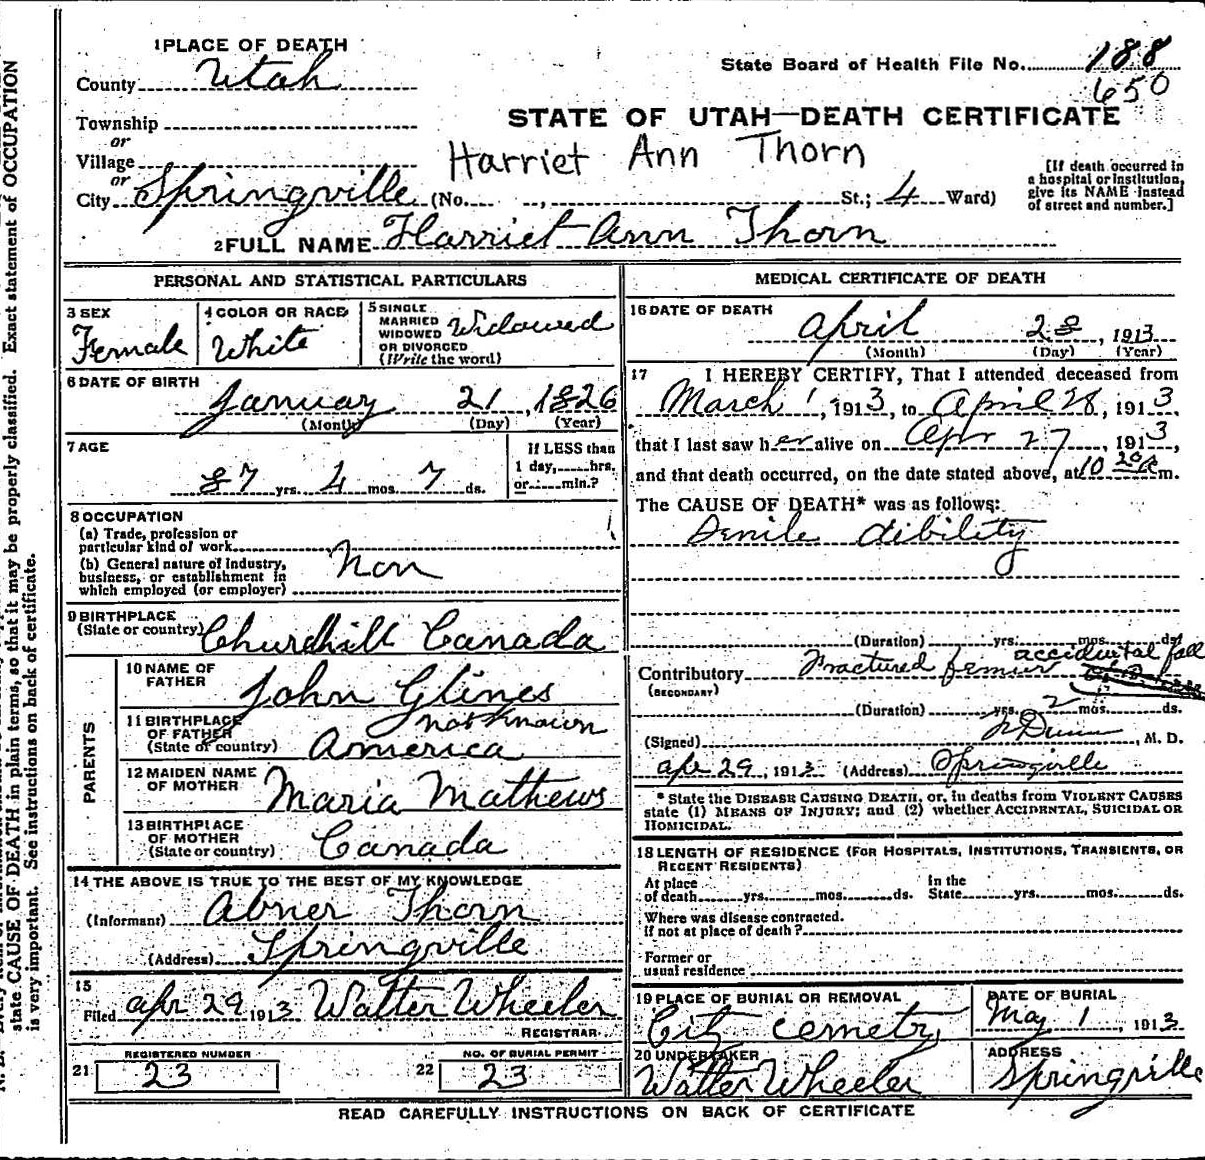 1 PLACE OF DEATH
County Utah
State Board of Health File No. 188
650
Township
STATE OF UTAH—DEATH CERTIFICATE
or
Village
Harriet Ann Thorn
or
City Springville (No. , St.; 4 Ward)
[If death occurred in
a hospital or institution,
give its NAME instead
of street and number.]
2 FULL NAME Harriet Ann Thorn
PERSONAL AND STATISTICAL PARTICULARS
3 SEX
Female
4 COLOR OR RACE
White
5 SINGLE
MARRIED
WIDOWED
OR DIVORCED
(Write the word)
Widowed
6 DATE OF BIRTH
January 21, 1826
(Month) (Day) (Year)
7 AGE
87 yrs. 4 mos. 7 ds.
If LESS than
1 day, hrs.
or min.?
8 OCCUPATION
(a) Trade, profession or
particular kind of work
(b) General nature of industry,
business, or establishment in
which employed (or employer)
Non
9 BIRTHPLACE
(State or country) Churchill Canada
PARENTS
10 NAME OF
FATHER
John Glines
11 BIRTHPLACE
OF FATHER
(State or country)
not known
America
12 MAIDEN NAME
OF MOTHER
Maria Mathews
13 BIRTHPLACE
OF MOTHER
(State or country)
Canada
14 THE ABOVE IS TRUE TO THE BEST OF MY KNOWLEDGE
(Informant) Abner Thorn
(Address) Springville
15
Filed Apr 29 1913 Walter Wheeler
REGISTRAR
REGISTERED NUMBER
21 23
NO. OF BURIAL PERMIT
22 23
MEDICAL CERTIFICATE OF DEATH
16 DATE OF DEATH
April 28, 1913
(Month) (Day) (Year)
17 I HEREBY CERTIFY, That I attended deceased from
March 1, 1913, to April 28, 1913,
that I last saw her alive on Apr 27, 1913,
and that death occurred, on the date stated above, at 10 20 m.
The CAUSE OF DEATH* was as follows:
Senile dibility
(Duration) yrs. mos. ds.
Contributory Fractured femur accidental fall
(SECONDARY)
(Duration) yrs. 2 mos. ds.
(Signed) Dunn, M. D.
Apr 29, 1913 (Address) Springville
* State the DISEASE CAUSING DEATH, or, in deaths from VIOLENT CAUSES
state (1) MEANS OF INJURY; and (2) whether ACCIDENTAL, SUICIDAL OR
HOMICIDAL.
18 LENGTH OF RESIDENCE (FOR HOSPITALS, INSTITUTIONS, TRANSIENTS, OR
RECENT RESIDENTS)
At place
of death yrs. mos. ds.
In the
State yrs. mos. ds.
Where was disease contracted.
If not at place of death?
Former or
usual residence
19 PLACE OF BURIAL OR REMOVAL
City cemetry
DATE OF BURIAL
May 1, 1913
20 UNDERTAKER
Walter Wheeler
ADDRESS
Springville
READ CAREFULLY INSTRUCTIONS ON BACK OF CERTIFICATE
state CAUSE OF DEATH in plain terms, so that it may be properly classified. Exact statement of OCCUPATION
is very important. See instructions on back of certificate.